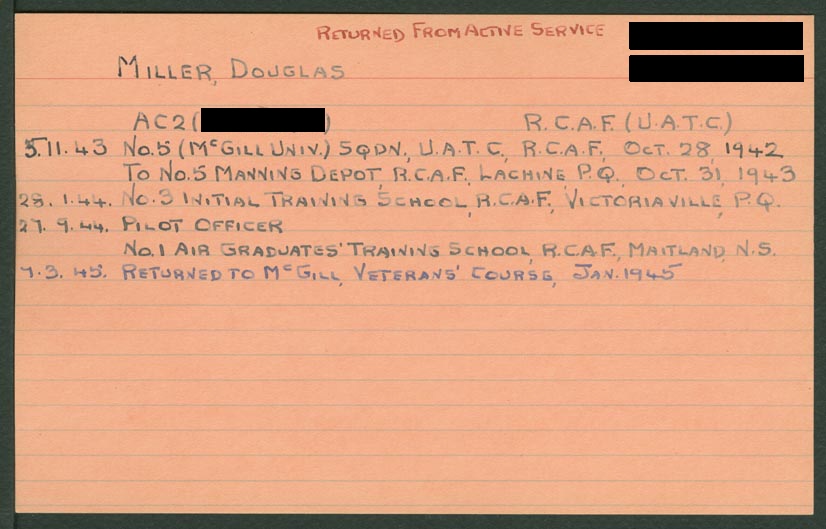 RETURNED FROM ACTIVE SERVICE
MILLER, DOUGLAS
AC2 ( ) R.C.A.F. (U.A.T.C.)
5.11.43 No.5 (McGILL UNIV.) SQDN., U.A.T.C., R.C.A.F., OCT. 28, 1942
TO No.5 MANNING DEPOT, R.C.A.F., LACHINE P.Q., OCT. 31, 1943
28.1.44. No.3 INITIAL TRAINING SCHOOL, R.C.A.F., VICTORIAVILLE, P.Q.
27.9.44. PILOT OFFICER
No.1 AIR GRADUATES' TRAINING SCHOOL, R.C.A.F., MAITLAND, N.S.
7.3.45. RETURNED TO McGILL, VETERANS' COURSE, JAN. 1945